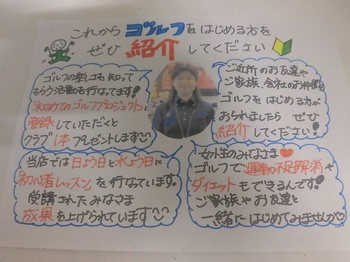 これからゴルフをはじめる方を
ぜひ紹介してください
ゴルフの楽しさを知って
もらう活動を行なってます!
「初めてのゴルフプロジェクト」に
登録していただくと
クラブ1本プレゼントします
ご近所のお友達や
ご家族、会社のお仲間で
ゴルフをはじめる方が
おられましたら ぜひ
紹介してください!
当店では日よう日と水よう日に
初心者レッスンを行なっています。
受講されたみなさま
成果を上げられています
女性のみなさま
ゴルフで運動不足解消や
ダイエットもできるんです!
ご家族やお友達と
一緒にはじめてみませんか